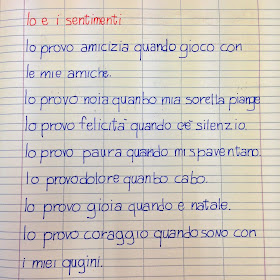 Io e i sentimenti
Io provo amicizia quando gioco con
le mie amiche.
Io provo noia quanbo mia sorella piange
Io provo felicità quando c'è silenzio.
Io provo paura quando mi spaventano.
Io provo dolore quanbo cabo.
Io provo gioia quando e natale.
Io provo coraggio quando sono con
i miei qugini.